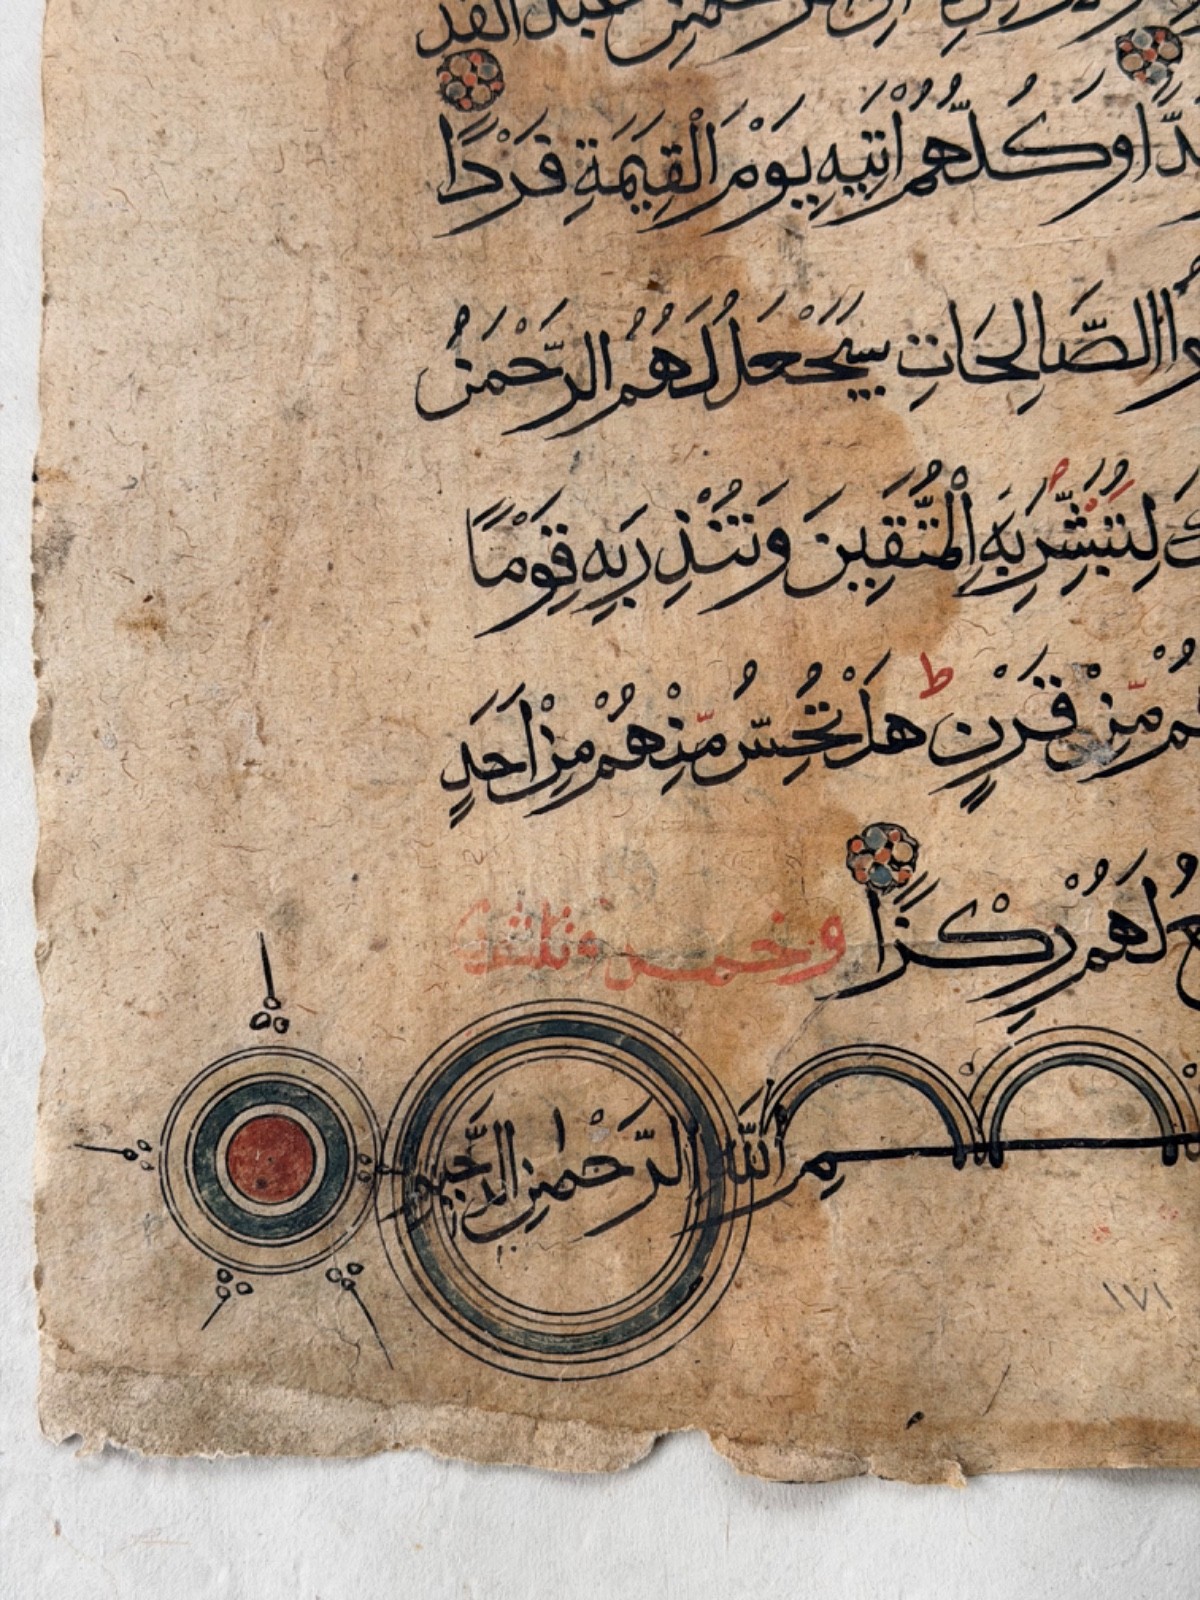 الرحمن عبدا لقد
وكلهم اتيه يوم القيمة فردا
وا الصالحات سيجعل لهم الرحمن
لتبشر به المتقين وتنذر به قوما
هم من قرن ط هل تحس منهم من احد
لهم ركزا وخمس
بسم الله الرحمن الرحيم
١٧١